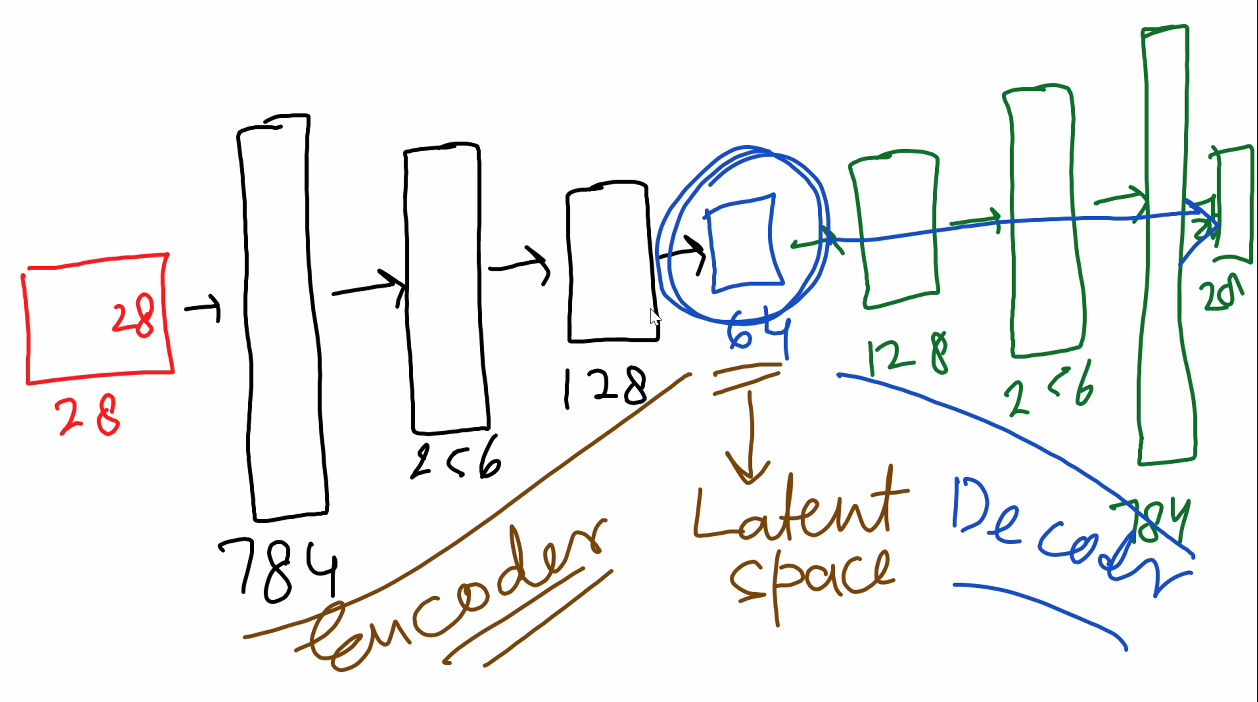 28
28
784
256
128
64
128
256
784
28
Encoder
Latent
space
Decoder